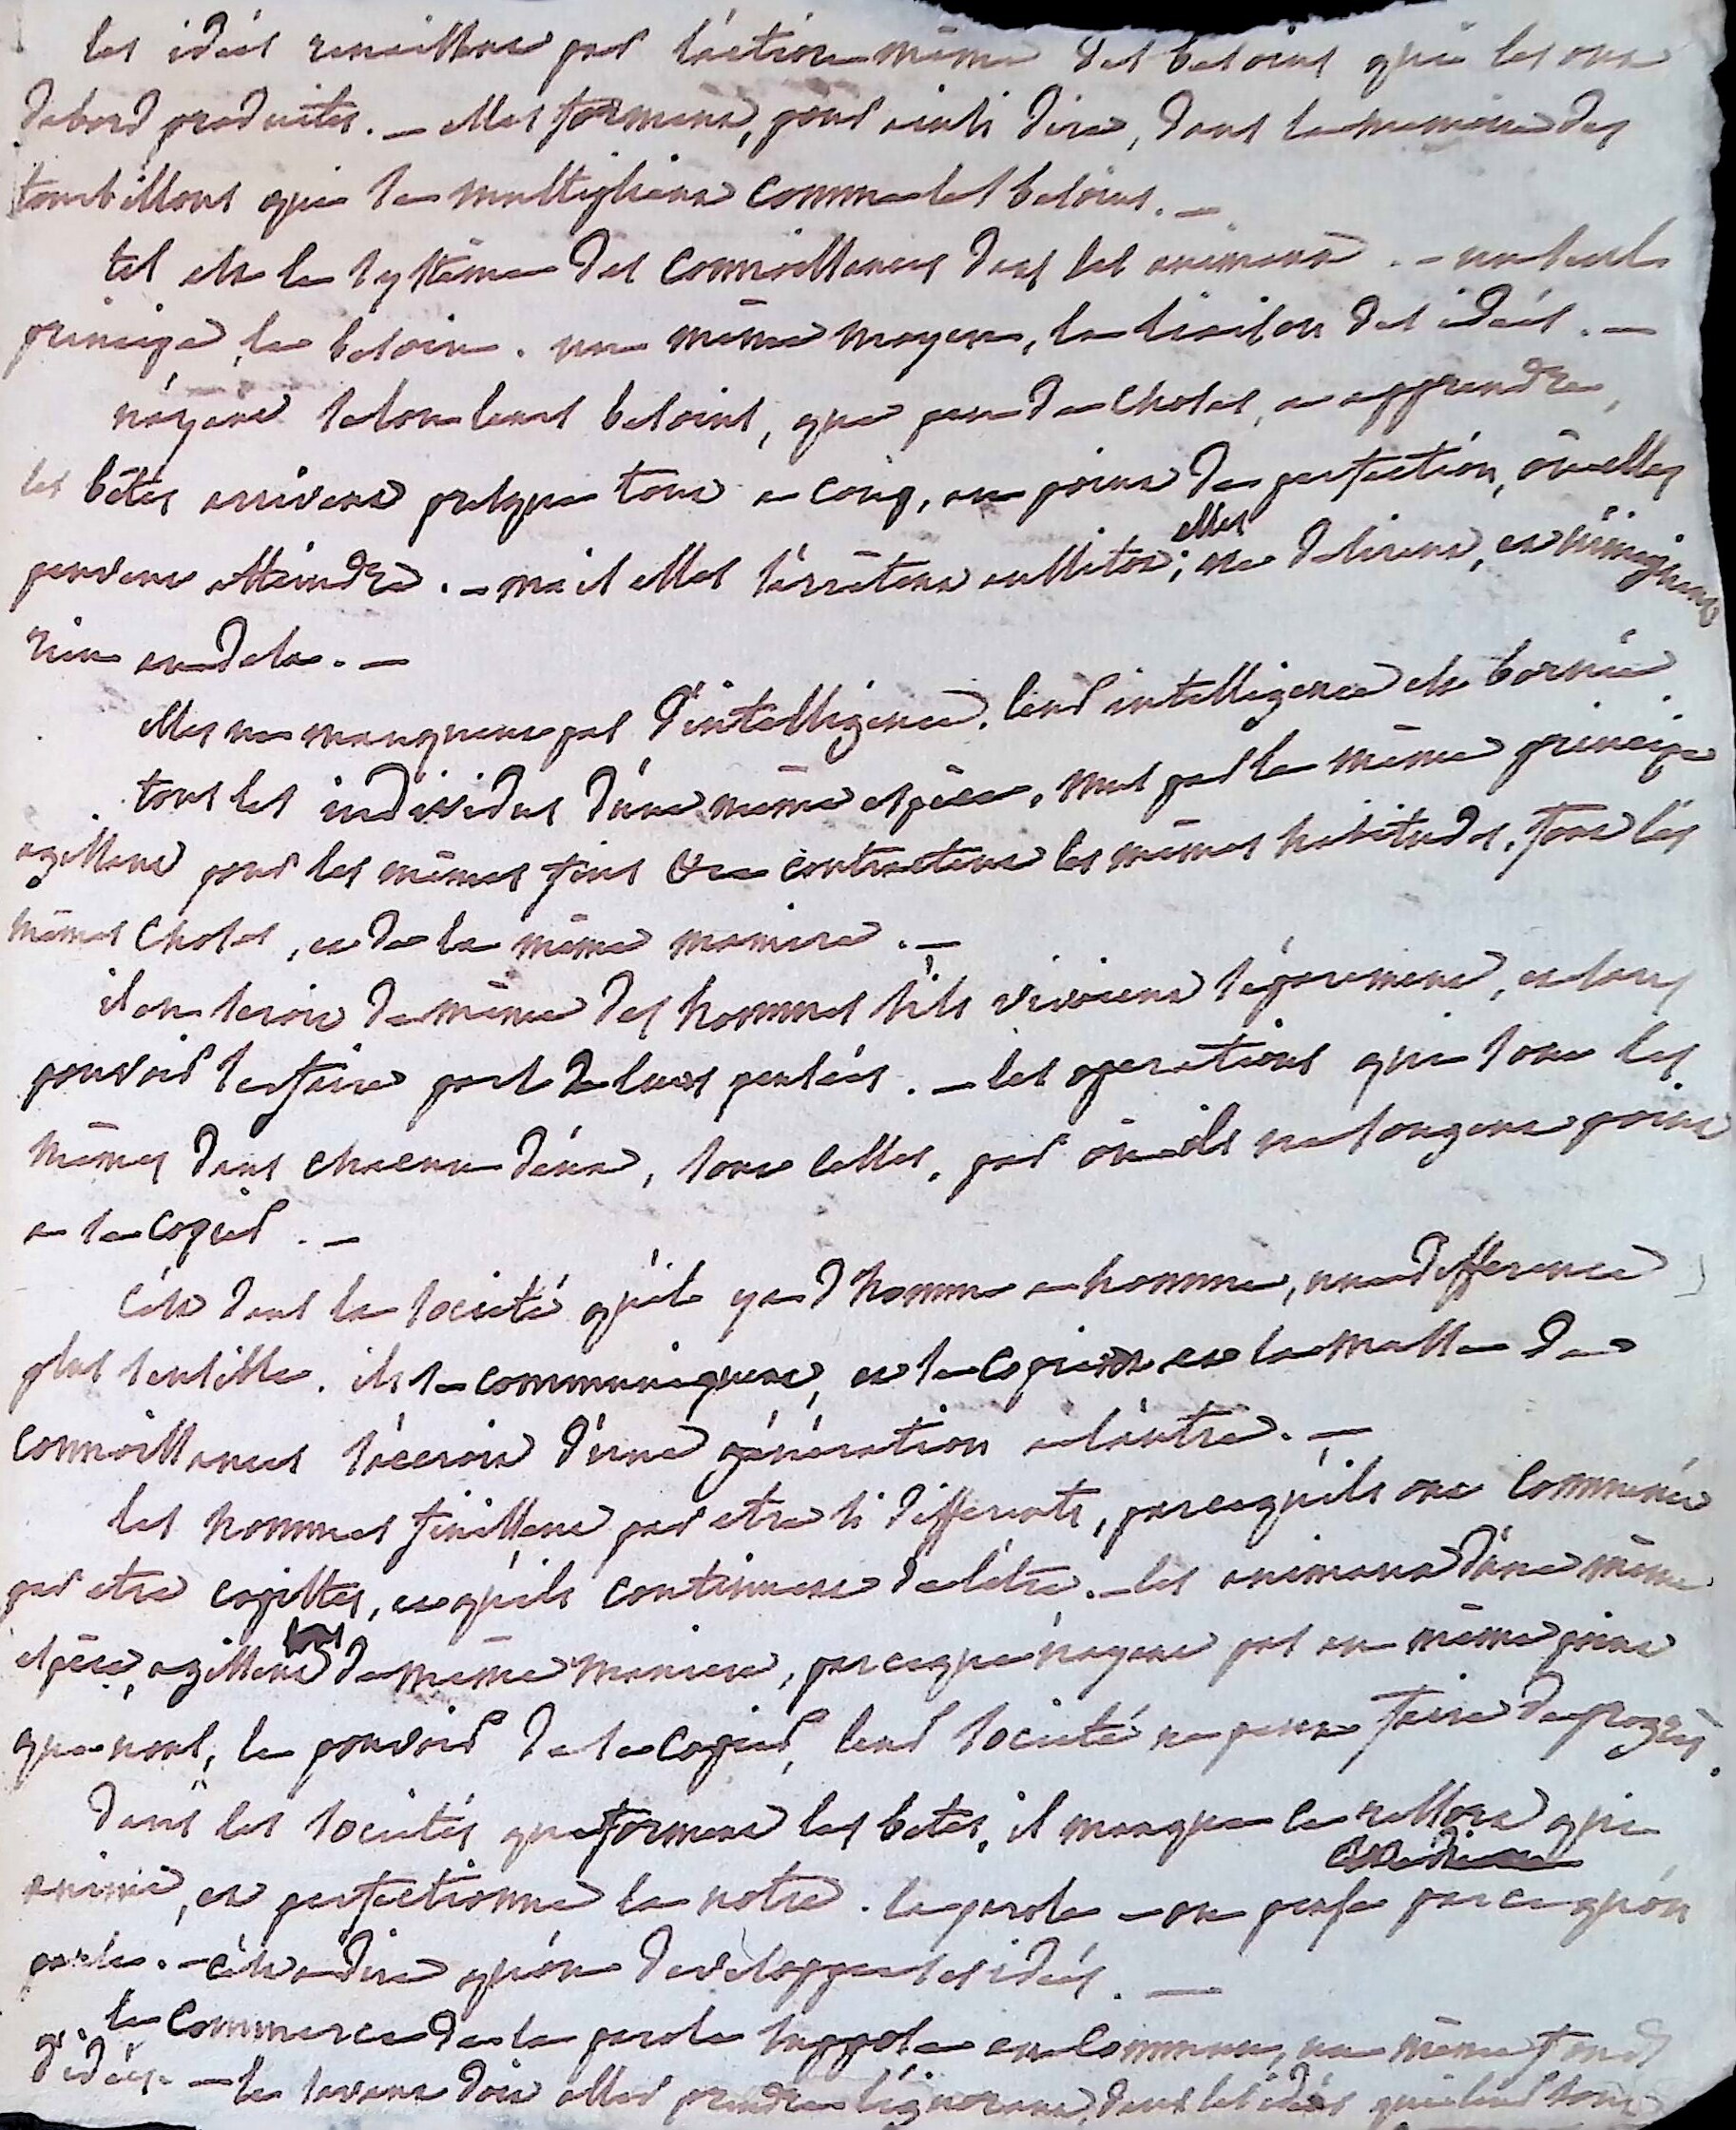 les idées renaissent par l'action même des besoins qui les ont
d'abord produites. – elles forment, pour ainsi dire, dans la memoire des
tourbillons qui se multiplient comme les besoins. –
tel est le systême des connoissances dans les animaux. – un seul
principe, le besoin. un même moyen, la liaison des idées. –
n'ayant selon leurs besoins, que peu de choses, a apprendre,
les bêtes arrivent presque tout a coup, au point de perfection, ou elles
peuvent atteindre. – mais elles s'arrêtent aussitot; elles ne desirent, et n'imaginent
rien au dela. –
elles ne manquent pas d'intelligence. leur intelligence est bornée
tous les individus d'une même espèce, mus par le même principe
agissent pour les mêmes fins & contractent les mêmes habitudes, font les
mêmes choses, et de la même maniere. –
il en seroit de même des hommes s'ils vivoient séparement, et sans
pouvoir se faire part de leurs pensées. – les operations qui sont les
mêmes dans chacun d'eux, sont celles, par ou ils ne songent point
a se copier. –
c'est dans la societé qu'il y a d'homme a homme, une difference
plus sensible. ils se communiquent, et se copient et la masse de
connoissances s'accroit d'une génération a l'autre. –
les hommes finissent par etre si differents, parcequ'ils ont commencé
par etre copistes, et qu'ils continuent de l'être. – les animaux d'une même
espèce, agissent de même maniere, parceque n'ayant pas au même point
que nous, le pouvoir de se copier, leur societé ne peut faire de progrès.
dans les societés que forment les betes, il manque ce ressort qui
anime, et perfectionne la notre. la parole – on pense parcequ'on
parle. – c'est a dire qu'on developpe ses idées. –
le commerce de la parole suppose en commun, un même fond
d'idées – le savant doit aller prendre l'ignorant, dans les idées qui leur sont